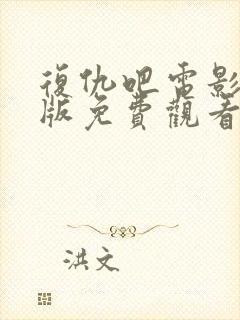 復仇吧電影
版免費觀看
洪文